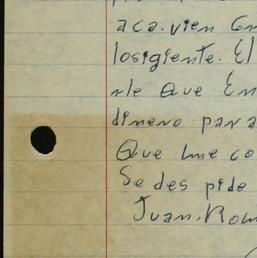 aca. vien Gn
losigiente. El
nle Que En
dinero para
Que lme co
Se des pide
Juan. Rom